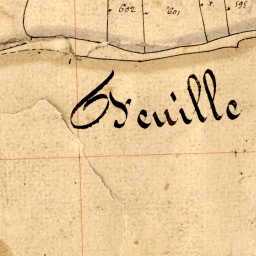 602 601 595
Feuille